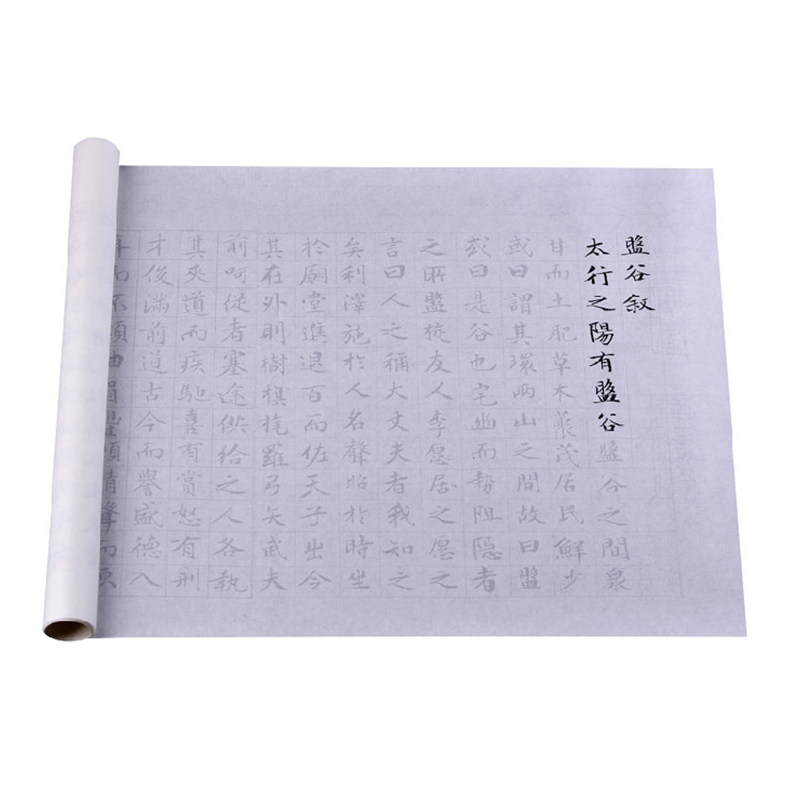 盤谷叙
太行之陽有盤谷盤谷之間泉
甘而土肥草木藂茂居民鮮少
或曰謂其環兩山之間故曰盤
或曰是谷也宅幽而勢阻隱者
之所盤旋友人李愿居之愿之
言曰人之稱大丈夫者我知之
矣利澤施於人名聲昭於時坐
於廟堂進退百而佐天子出令
其在外則樹旗旄羅弓矢武夫
前呵從者塞途供給之人各執
其夾道而疾馳喜有賞怒有刑
才俊滿前道古今而譽盛德入
耳而不煩曲眉豐頰清聲而便